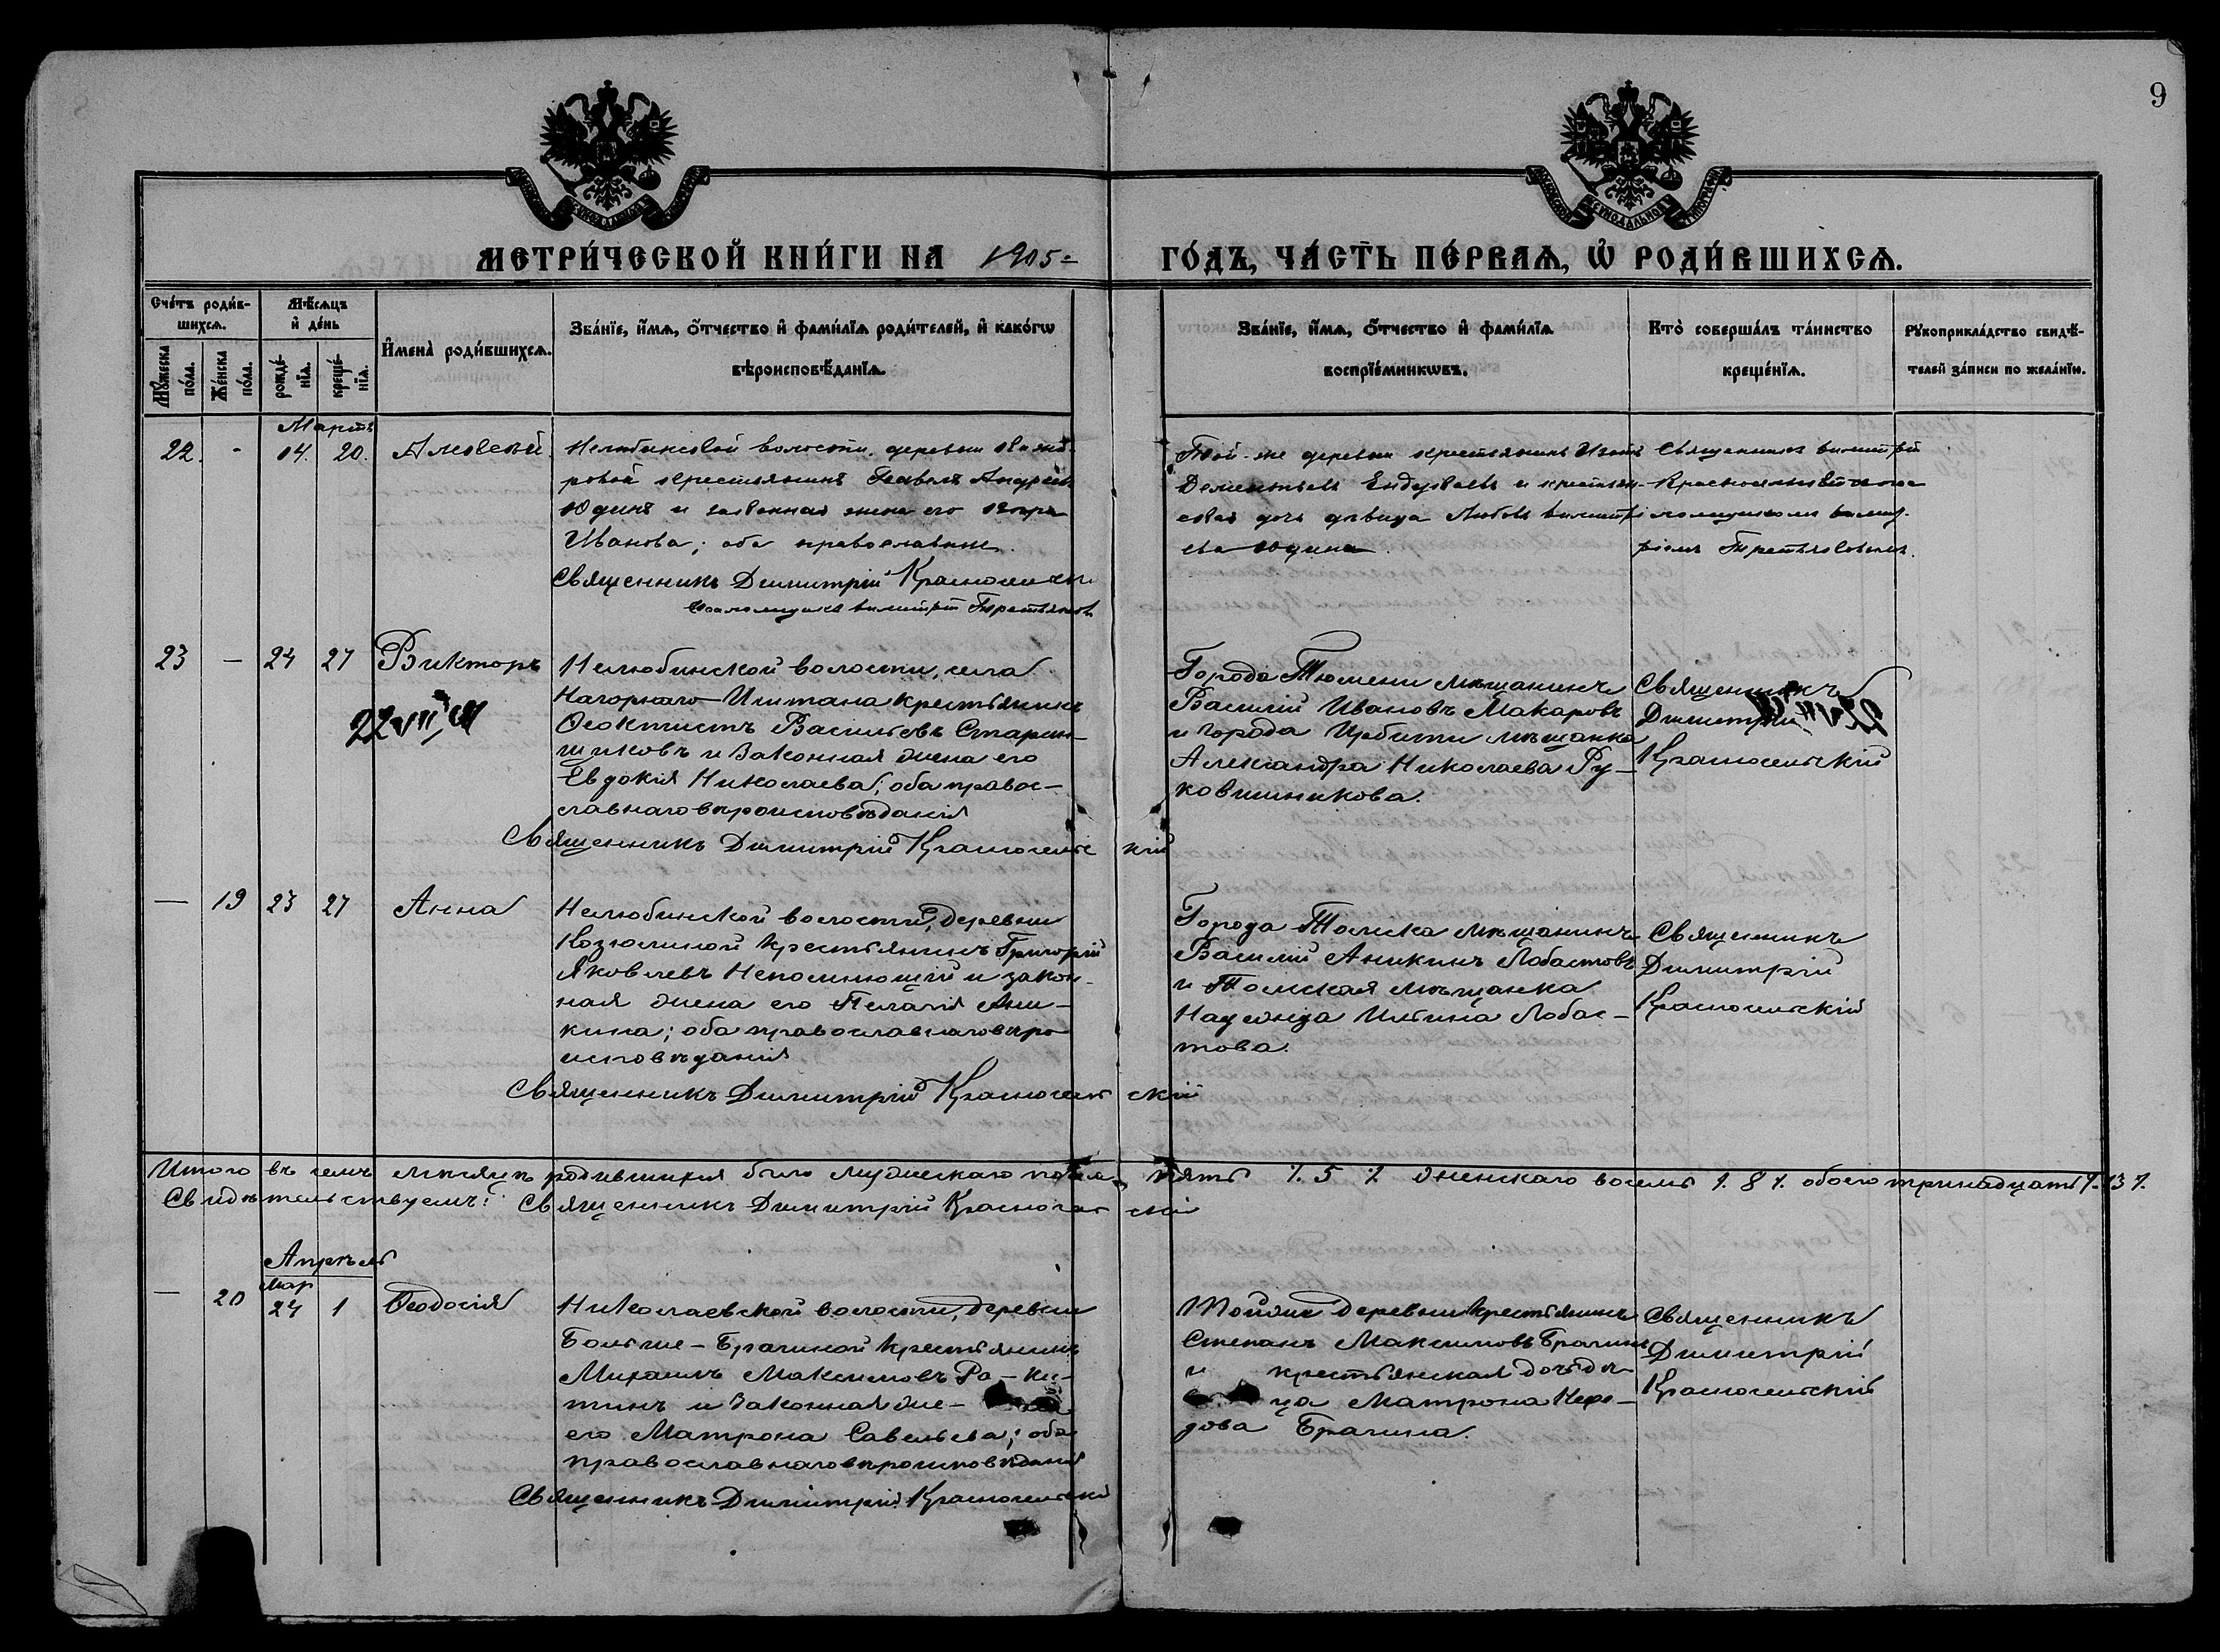 9
МЕТРИ́ЧЕСКОЙ КНИ́ГИ НА 1905 =
ГО́ДЪ, ЧА́СТЬ ПЕ́РВАѦ, Ѽ РОДИ́ВШИХСѦ.
Сче́тъ роди́в-
шихсѧ.
Мѣ́сѧцъ
и҆ де́нь
Мꙋ́жеска
по́ла.
Же́нска
по́ла.
рожде́-
нїѧ.
креще́-
нїѧ.
И҆мена̀ роди́вшихсѧ.
Зва́нїе, и҆́мѧ, ѻ҆́тчество и҆ фами́лїѧ роди́телей, и҆ како́гѡ
вѣроисповѣ́данїѧ.
Зва́нїе, и҆́мѧ, ѻ҆́тчество и҆ фами́лїѧ
воспрїе́мникѡвъ.
Кто̀ соверша́лъ та́инство
креще́нїѧ.
Рꙋкоприкла́дство свидѣ́-
телей за́писи по жела́нїю.
Мартъ
22. - 14. 20. Алексѣй
Нелюбинской волости, деревни
ровой крестьянинъ Павелъ Андреевъ
Юдинъ и законная жена его
Иванова; оба православные.
Священникъ Димитрій Красносельск
Псаломщикъ Димитрій Третьяковъ
Той-же деревни крестьянинъ
Дементьевъ и крестьян-
ская дочь дѣвица Любовь Димитрі
ева Юдина.
Священникъ Димитрій
Красносельскій
псаломщикомъ Димит-
ріемъ Третьяковымъ.
23 — 24 27 Викторъ
22 VII
Нелюбинской волости, села
Нагорнаго-Иштана крестьянинъ
Ѳеоктистъ Васильевъ Старин-
щиковъ и законная жена его
Евдокія Николаева; оба правос-
славнаго вѣроисповѣданія
Священникъ Димитрій Красносельскій
Города Тюмени мѣщанинъ
Василій Ивановъ Макаровъ
и города Ирбити мѣщанка
Александра Николаева Ру-
ковишникова.
Священникъ
Димитрій
Красносельскій
— 19 23 27 Анна
Нелюбинской волости, деревни
Козюлиной крестьянинъ Григорій
Яковлевъ Непомнющій и закон-
ная жена его Пелагія Ани-
кина; оба православнаго вѣро
исповѣданія
Священникъ Димитрій Красносельскій
Города Томска мѣщанинъ
Василій Аникинъ Лобастовъ
и Томская мѣщанка
Надежда Ильина Лобас-
това.
Священникъ
Димитрій
Красносельскій
Итого въ семъ мѣсяцѣ родившихся было мужескаго пола пять /. 5 /. женскаго восемь /. 8 /. обоего тринадцать /. 13 /.
Свидѣтельствуемъ: Священникъ Димитрій Красносельскій
Апрѣль
Мар
— 20 24 1 Ѳеодосія
Николаевской волости, деревни
Больше-Брагиной крестьянинъ
Михаилъ Максимовъ Ра-ки-
тинъ и законная же-
его Матрона Савельева; оба
православнаго вѣроисповѣданія
Священникъ Димитрій Красносельскій
Той же деревни крестьянинъ
Степанъ Максимовъ Брагинъ
и крестьянская дочь дѣ-
ца Матрона
дова Брагина.
Священникъ
Димитрій
Красносельскій